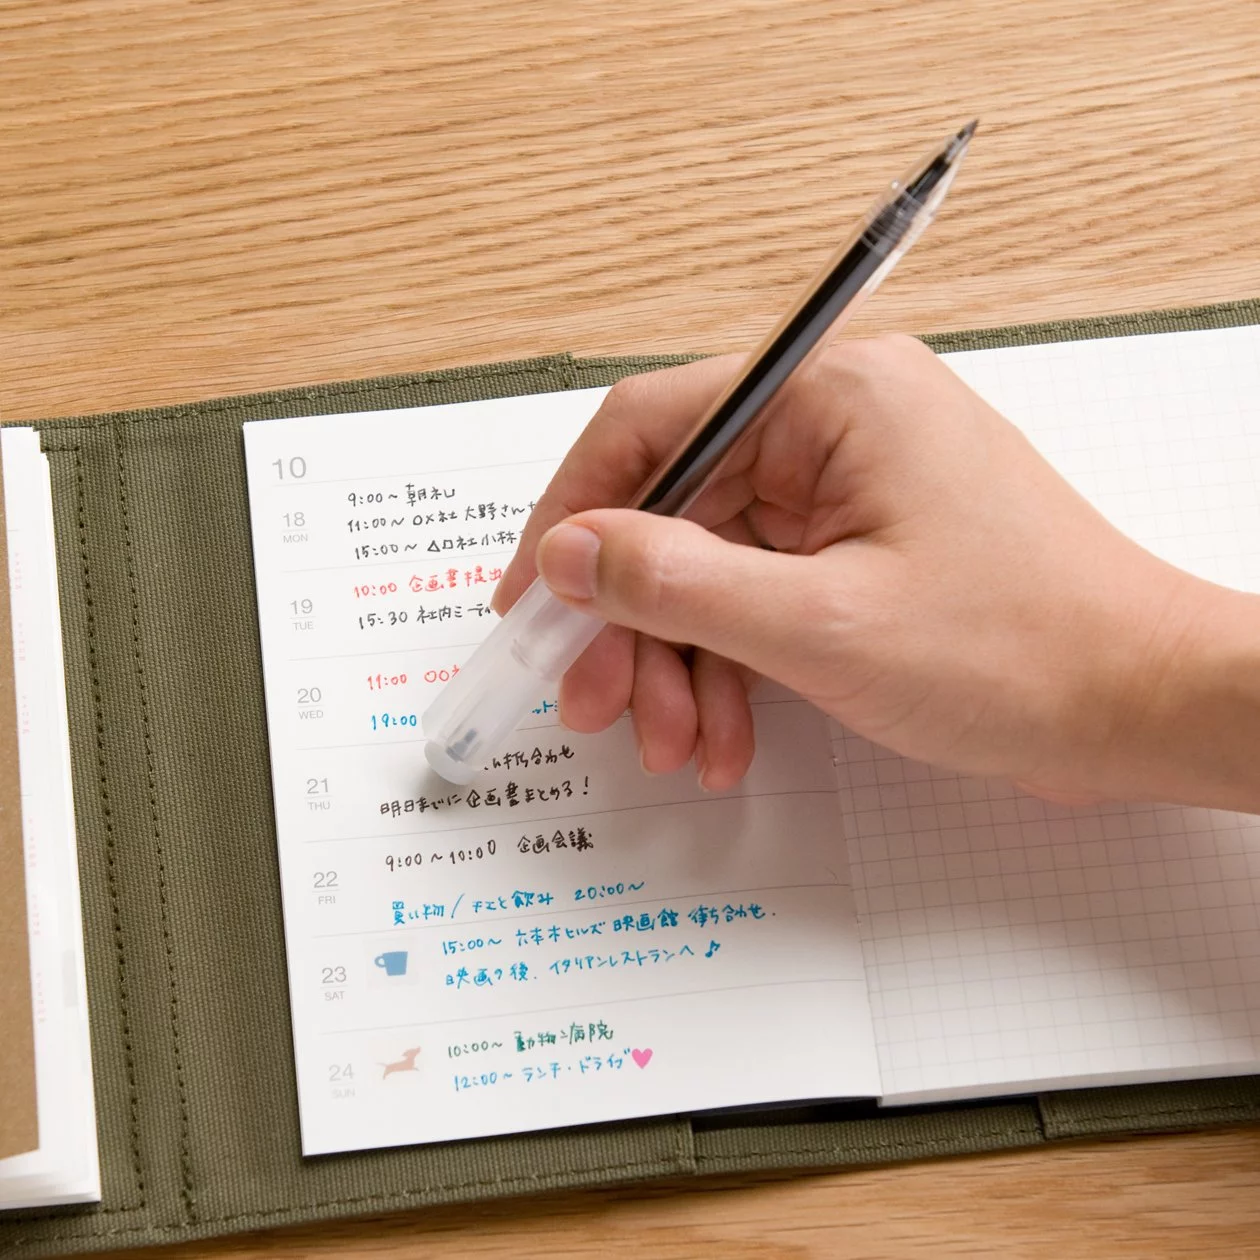 10
18
MON
9:00～ 朝礼
11:00～ 〇×社 大野さん
15:00～ △口社 小林
19
TUE
10:00 企画書提出
15:30 社内ミーティ
20
WED
11:00 〇〇
19:00
21
THU
打ち合わせ
明日までに企画書まとめる！
22
FRI
9:00～10:00 企画会議
買い物/チエと飲み 20:00～
23
SAT
15:00～ 六本木ヒルズ 映画館 待ち合わせ.
映画の後、イタリアンレストランへ♪
24
SUN
10:00～ 動物病院
12:00～ ランチ・ドライブ